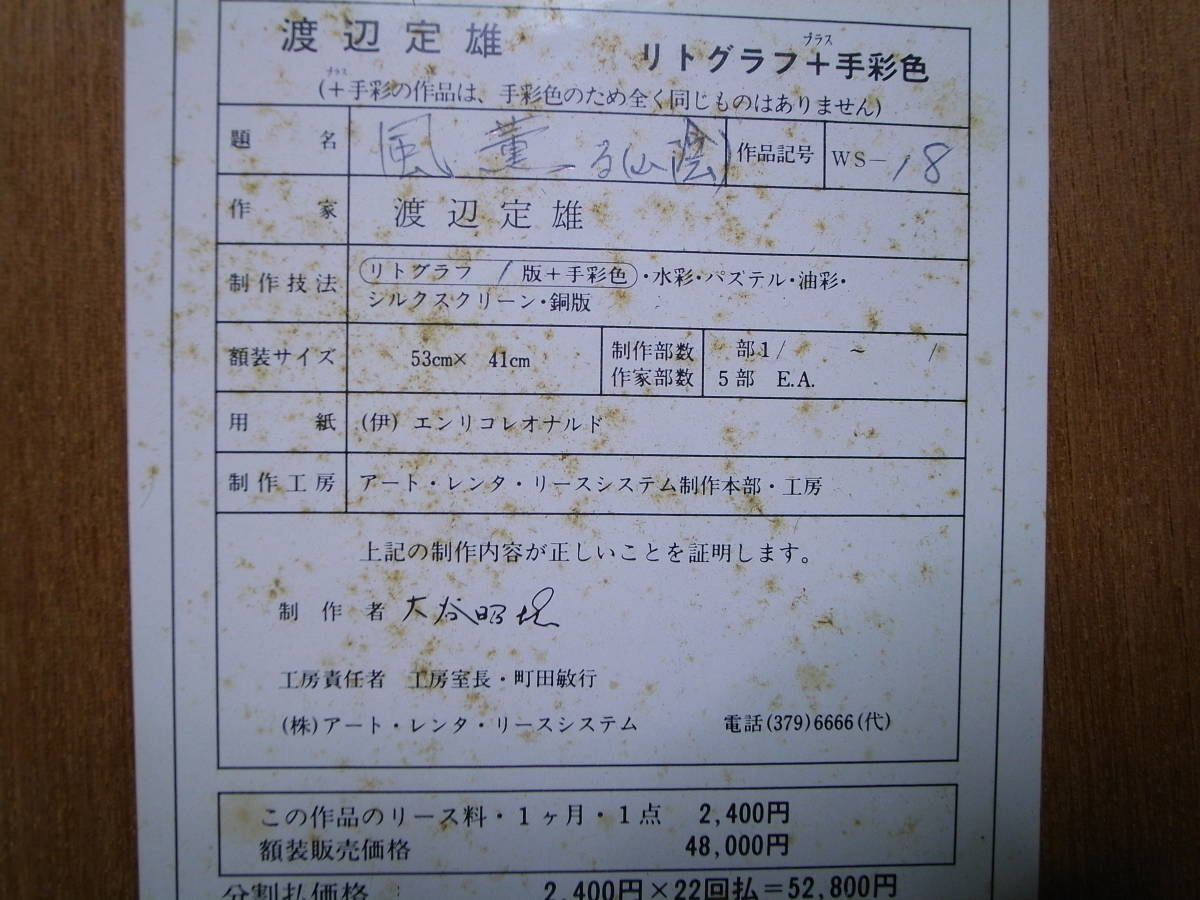 渡辺定雄 リトグラフ+手彩色
プラス
プラス
(+手彩の作品は、手彩色のため全く同じものはありません)
題名 風薫る(山陰) 作品記号 WS-18
作家 渡辺定雄
制作技法 リトグラフ / 版+手彩色・水彩・パステル・油彩・
シルクスクリーン・銅版
額装サイズ 53cm× 41cm 制作部数 部1/ ~ /
作家部数 5部 E.A.
用紙 (伊) エンリコレオナルド
制作工房 アート・レンタ・リースシステム制作本部・工房
上記の制作内容が正しいことを証明します。
制作者 大谷昭
工房責任者 工房室長・町田敏行
(株)アート・レンタ・リースシステム 電話(379)6666(代)
この作品のリース料・1ヶ月・1点 2,400円
額装販売価格 48,000円
分割払価格 2,400円×22回払=52,800円